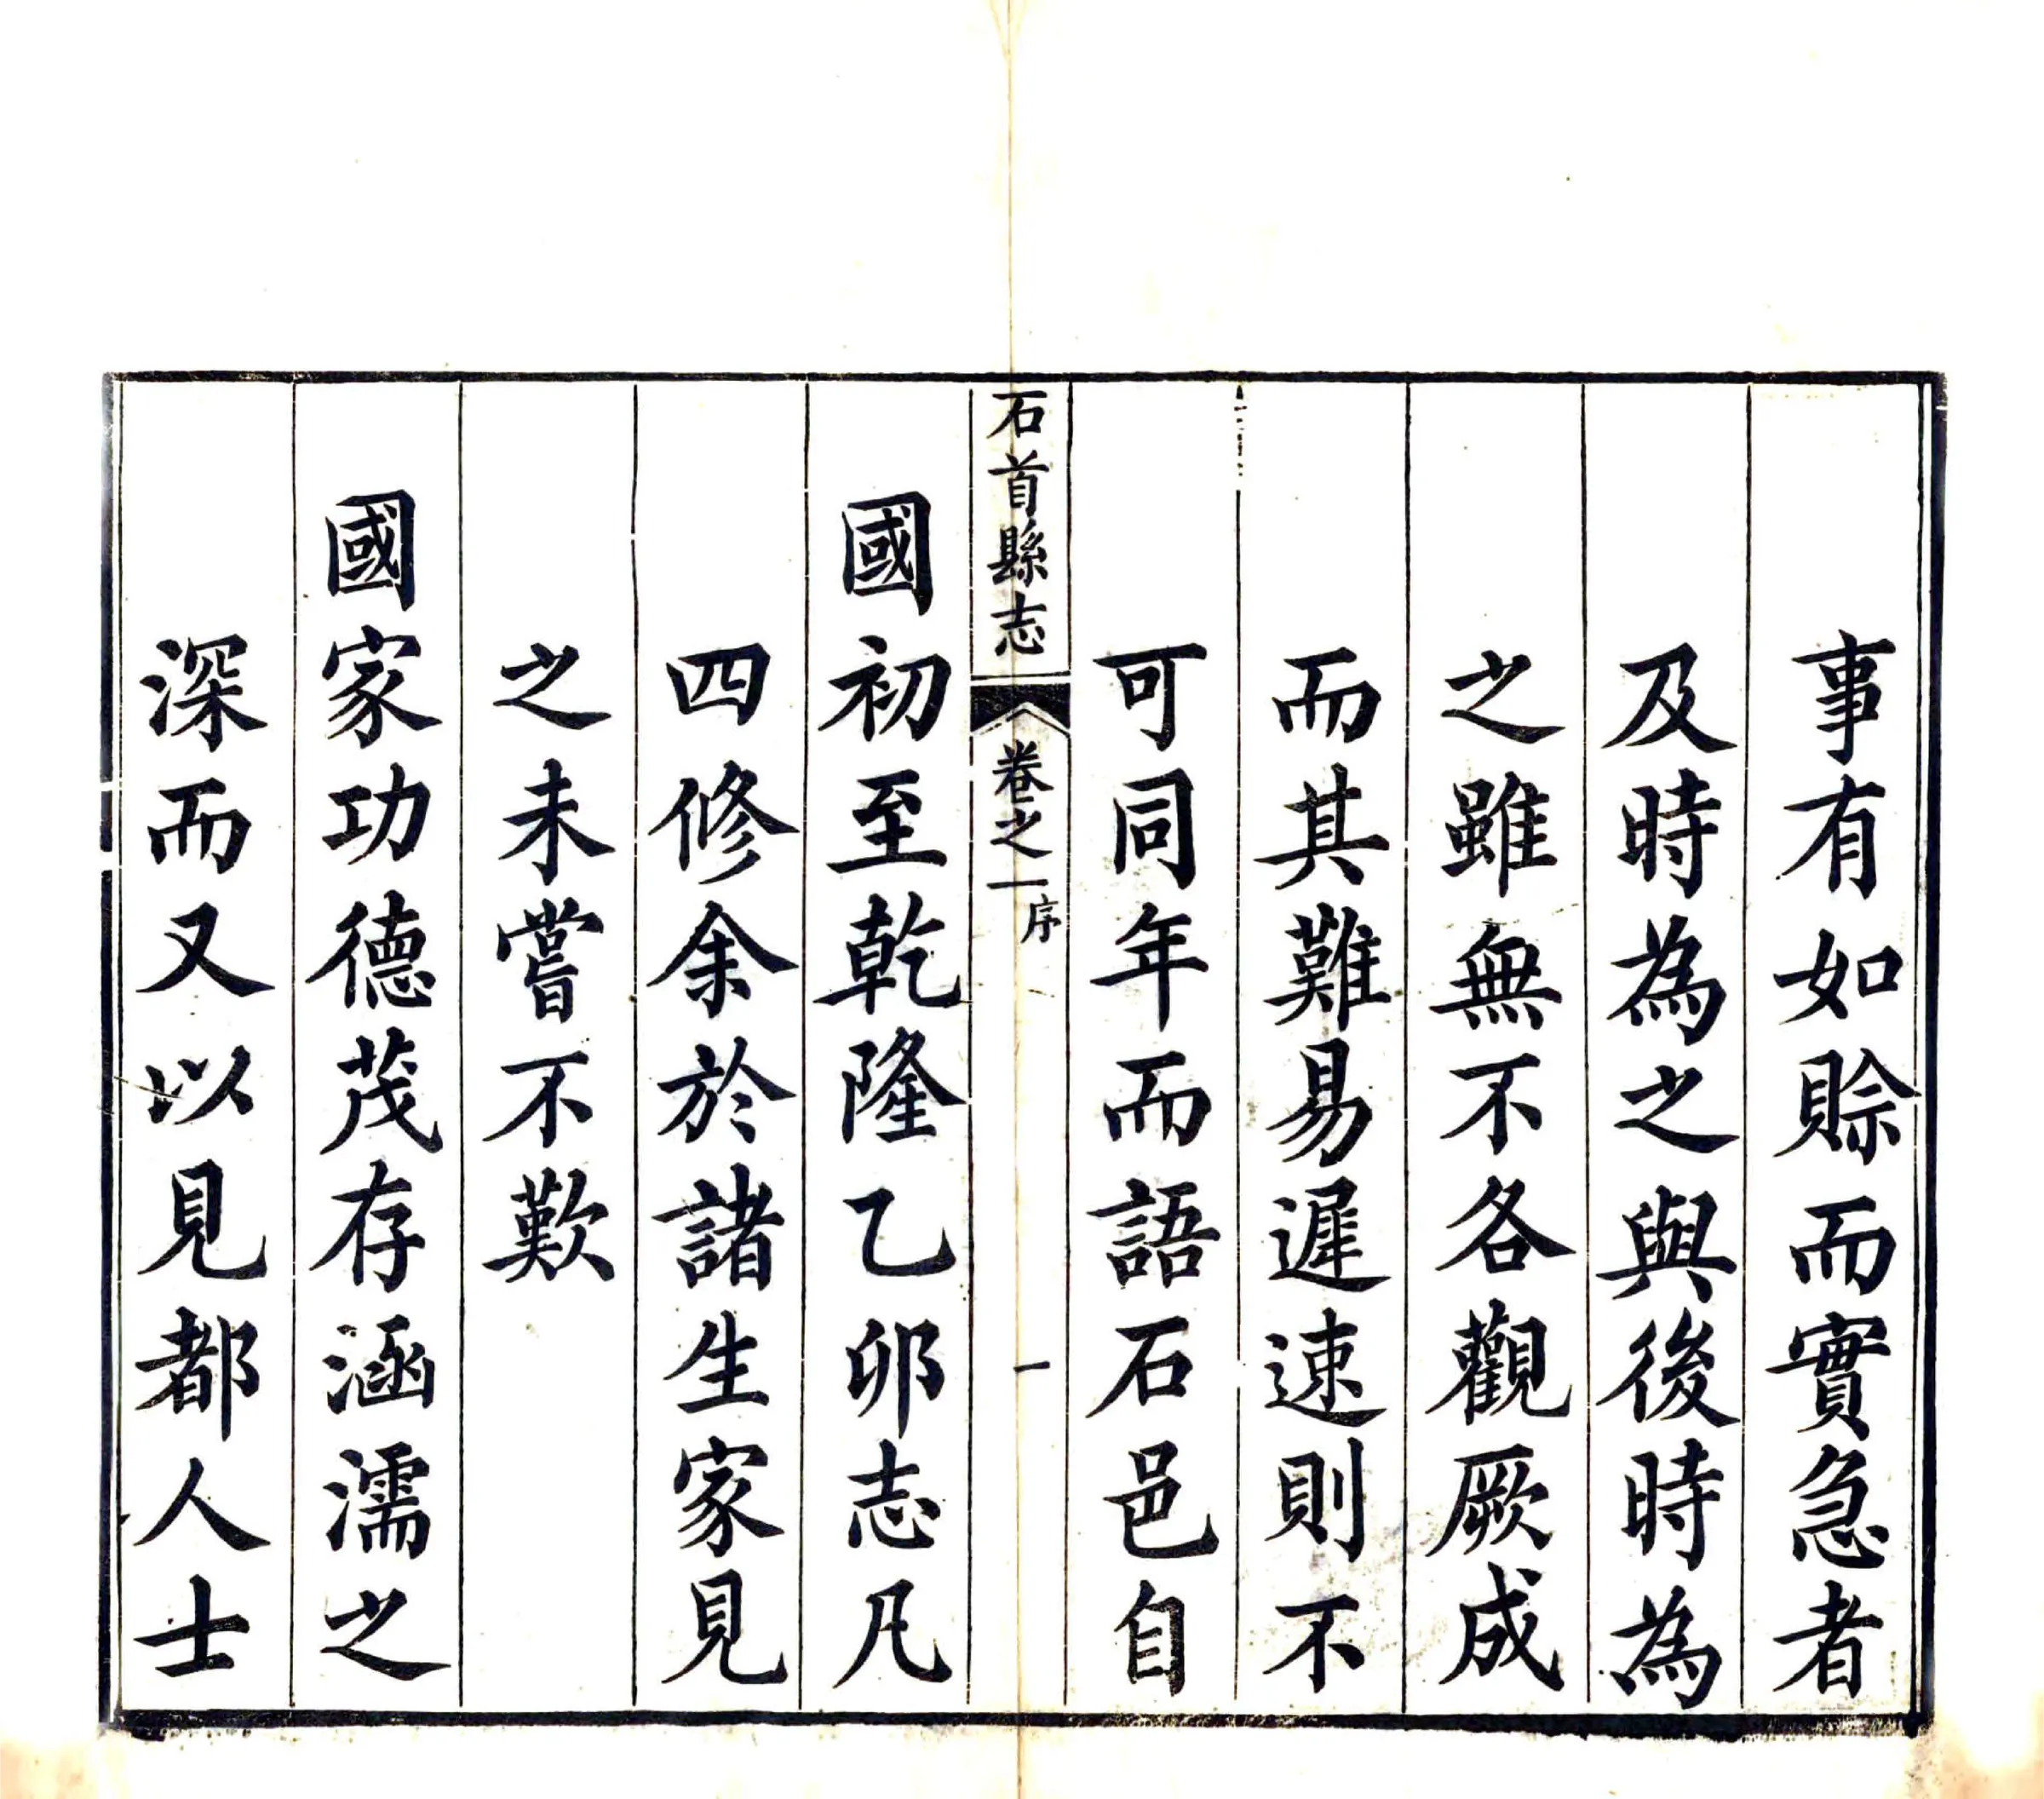 事有如賒而實急者
及時為之與後時為
之雖無不各觀厥成
而其難易遲速則不
可同年而語石邑自
石首縣志
卷之一
序
一
國初至乾隆乙卯志凡
四修余於諸生家見
之未嘗不歎
國家功德茂存涵濡之
深而又以見都人士